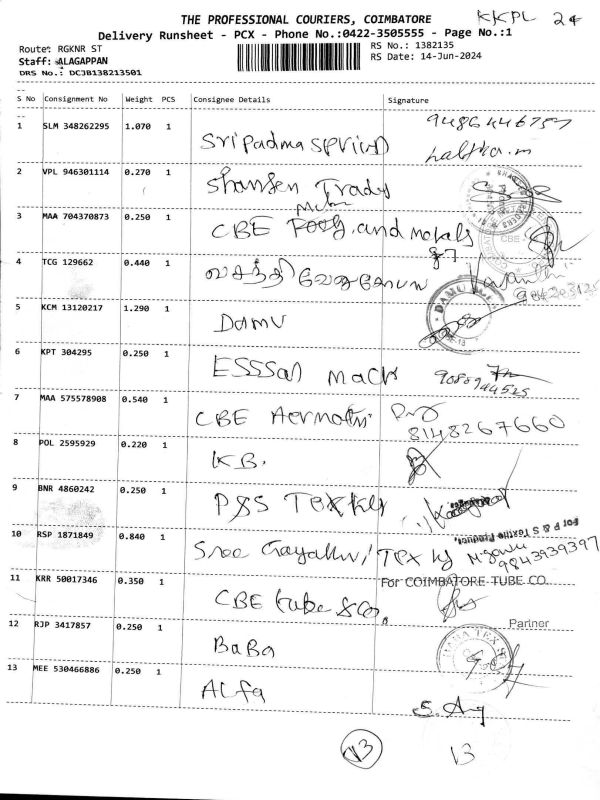 THE PROFESSIONAL COURIERS, COIMBATORE
KKPL 24
Delivery Runsheet - PCX - Phone No.:0422-3505555 - Page No.:1
Route: RGKNR ST
RS No.: 1382135
Staff: ALAGAPPAN
RS Date: 14-Jun-2024
DRS No.: DCJB138213501
S No Consignment No Weight PCS Consignee Details Signature
1 SLM 348262295 1.070 1 Sri Padma 9486446757
2 VPL 946301114 0.270 1
3 MAA 704370873 0.250 1 CBE and metals
4 TCG 129662 0.440 1 வசந்தி
5 KCM 13120217 1.290 1 Damu
6 KPT 304295 0.250 1 ESSSan mach
7 MAA 575578908 0.540 1 CBE 8148267660
8 POL 2595929 0.220 1 K.B.
9 BNR 4860242 0.250 1 P&S
For P & S Textile Products,
10 RSP 1871849 0.840 1 Sree Gayathri Tex 9843939397
11 KRR 50017346 0.350 1 CBE tube & Co, For COIMBATORE TUBE CO.
Partner
12 RJP 3417857 0.250 1 BaBa
13 MEE 530466886 0.250 1 Alfa
13 13